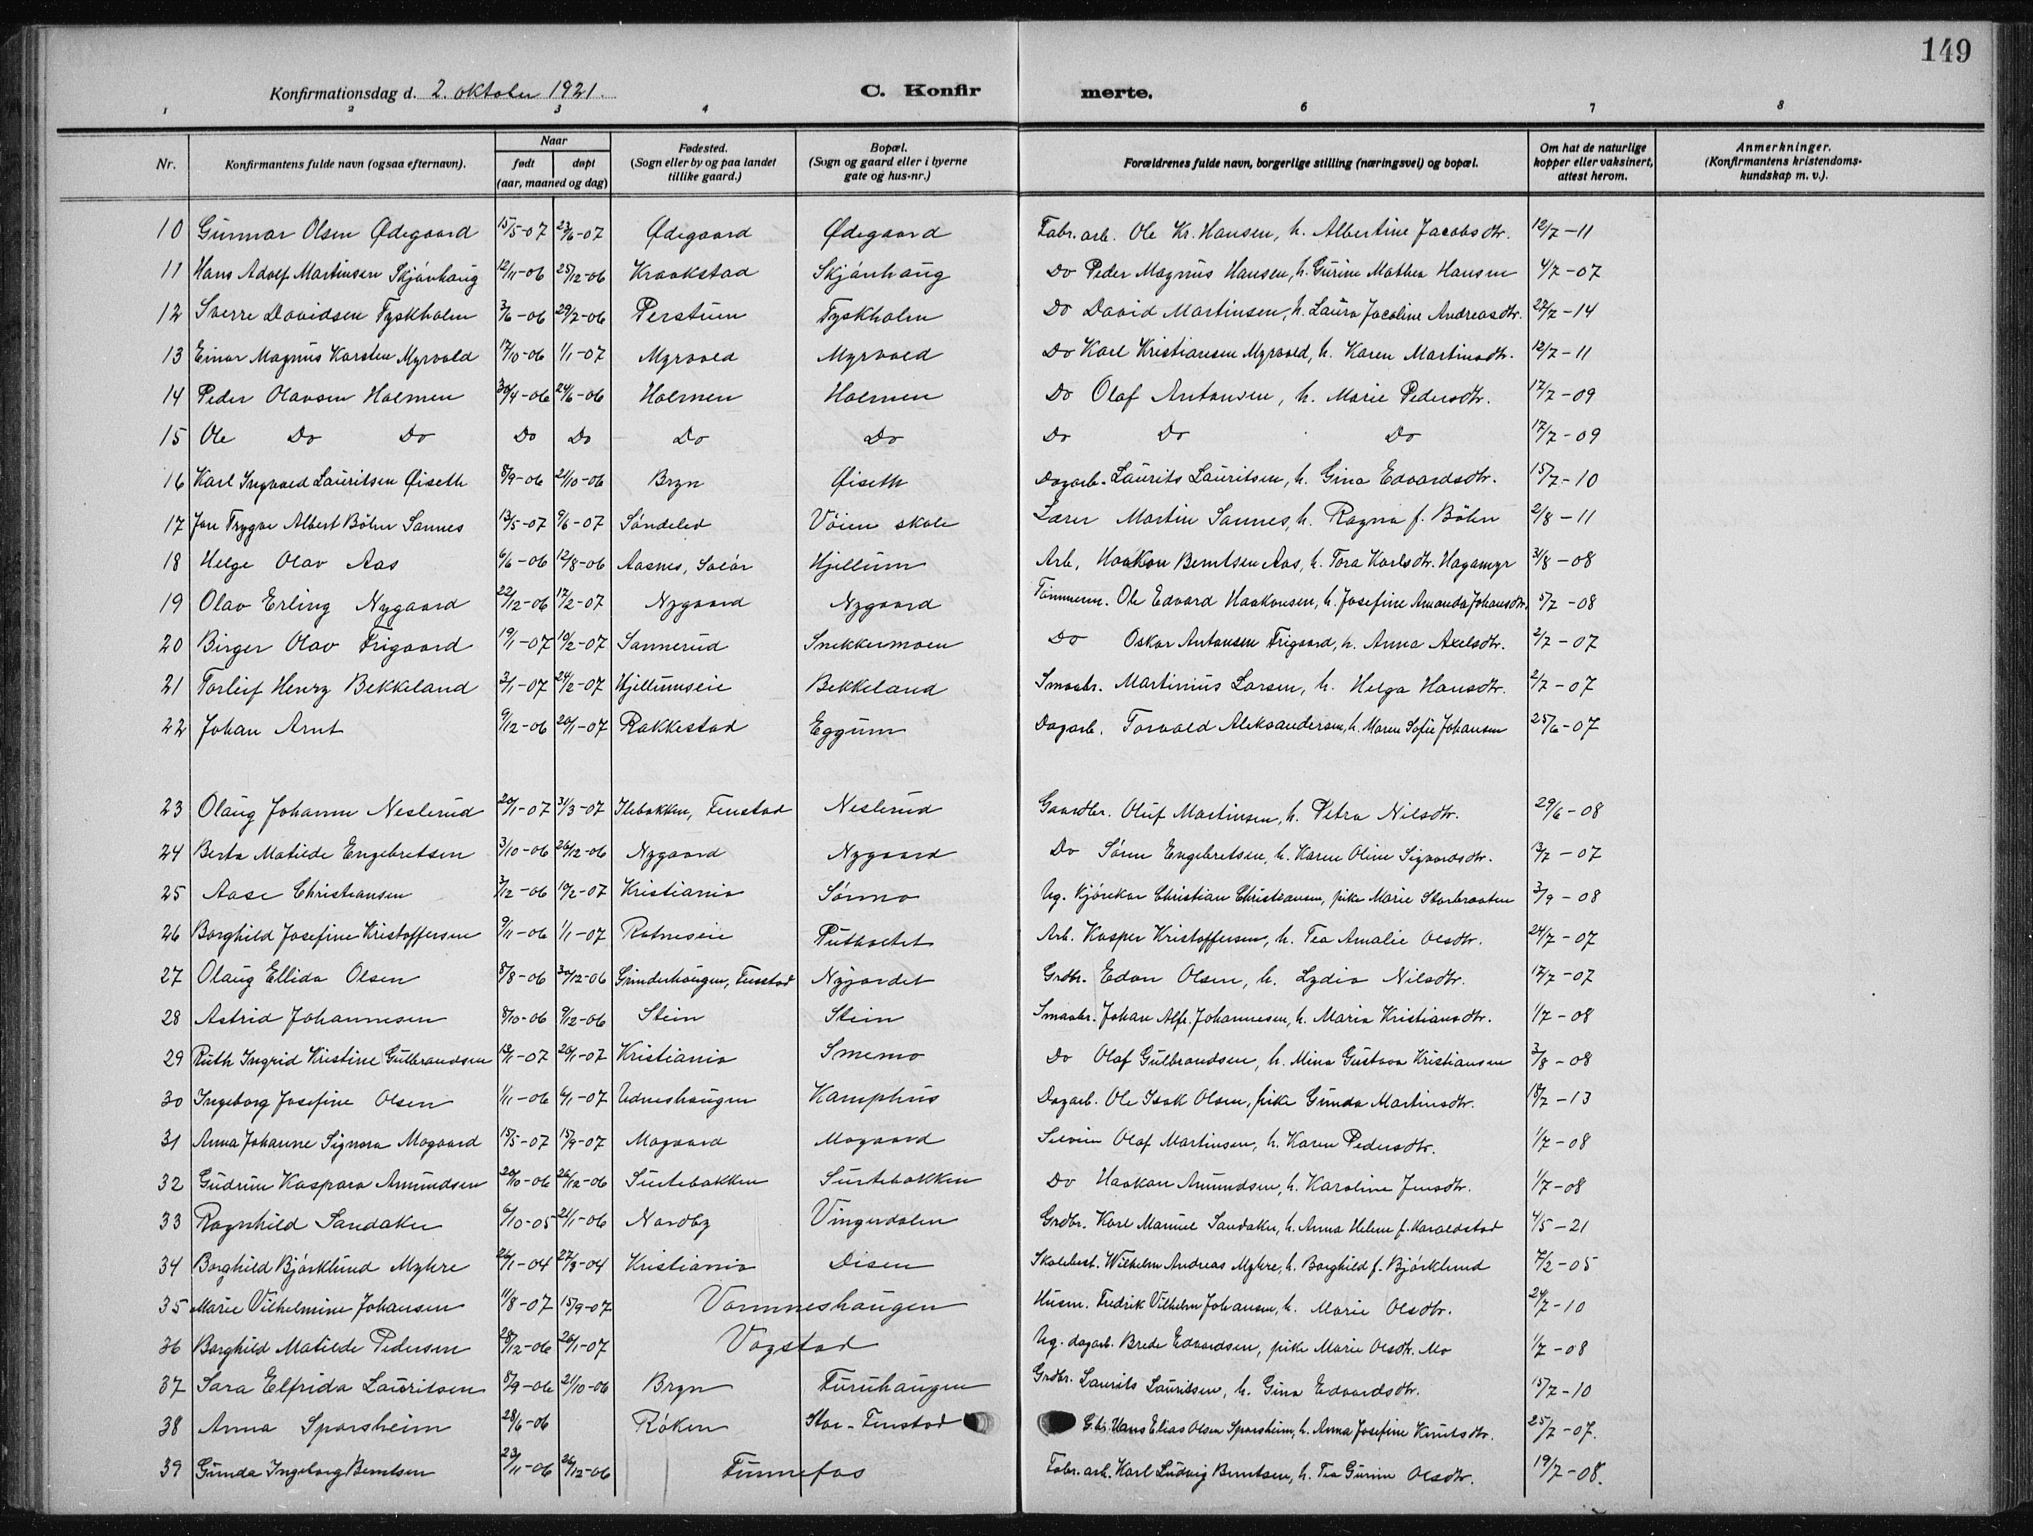 149
Konfirmationsdag d. 2. oktober 1921. C. Konfir merte.
1 2 3 4 6 7 8
Nr. Konfirmantens fulde navn (ogsaa efternavn). Naar født døpt (aar, maaned og dag) Fødested. (Sogn eller by og paa landet tillike gaard.) Bopæl. (Sogn og gaard eller i byerne gate og hus-nr.) Forældrenes fulde navn, borgerlige stilling (næringsvei) og bopæl. Om hat de naturlige kopper eller vaksinert, attest herom. Anmerkninger. (Konfirmantens kristendoms- kundskap m. v.).
10 Gunnar Olsen Ødegaard 15/5-07 23/6-07 Ødegaard Ødegaard Fabr. arb. Ole Kr. Hansen, h. Albertine Jacobsdtr. 12/7-11
11 Hans Adolf Martinsen Skjønhaug 12/11-06 25/12-06 Kraakstad Skjønhaug Do Peder Magnus Hansen, h. Gurine Mathea Hansen 4/7-07
12 Sverre Davidsen Tyskholm 3/6-06 29/7-06 Perstuen Tyskholm Do David Martinsen, h. Laura Jacoline Andreasdtr. 27/7-14
13 Einar Magnus Karsten Myrvold 17/10-06 1/1-07 Myrvold Myrvold Do Karl Kristiansen Myrvold, h. Karen Martinsdtr. 12/7-11
14 Peder Olavsen Holmen 30/4-06 24/6-06 Holmen Holmen Do Olaf Antonsen, h. Marie Pedersdtr. 17/7-09
15 Ole Do Do Do Do Do Do Do Do Do 17/7-09
16 Karl Ingvald Lauritsen Øiseth 8/9-06 21/10-06 Bryn Øiseth Dagarb. Laurits Lauritsen, h. Gina Edvardsdtr. 15/7-10
17 Jore Trygve Albert Bøhn Sannes 13/5-07 9/6-07 Søndeled Vøien skole Lærer Martin Sannes, h. Ragna f. Bøhn 2/8-11
18 Helge Olav Aas 6/6-06 12/8-06 Aasnes, Solør Hjellum Arb. Haakon Berntsen Aas, h. Tora Karlsdtr. Hagamyr 31/8-08
19 Olav Erling Nygaard 22/12-06 17/2-07 Nygaard Nygaard Tømmerm. Ole Edvard Haakonsen, h. Josefine Amanda Johansdtr. 5/7-08
20 Birger Olav Frigaard 19/1-07 10/2-07 Sannerud Snekkermoen Do Oskar Antonsen Frigaard, h. Anna Axelsdtr. 2/7-07
21 Torleif Henry Bekkeland 3/1-07 24/2-07 Hjellumseie Bekkeland Smaabr. Martinius Larsen, h. Helga Hansdtr. 2/7-07
22 Johan Arnt 9/12-06 20/1-07 Rakkestad Eggum Dagarb. Torvald Aleksandersen, h. Maren Sofie Johansen 25/6-07
23 Olaug Johanne Neslerud 20/1-07 31/3-07 Ilebakken, Fenstad Neslerud Gaardbr. Oluf Martinsen, h. Petra Nilsdtr. 29/6-08
24 Berta Matilde Engebretsen 3/10-06 26/12-06 Nygaard Nygaard Do Søren Engebretsen, h. Karen Oline Sigvardsdtr. 3/7-07
25 Aase Christiansen 3/12-06 10/2-07 Kristiania Sørmo Ug. Kjørekar Christian Christiansen, pike Marie Storbraaten 3/9-08
26 Borghild Josefine Kristoffersen 9/11-06 1/1-07 Rotneseie Putholtet Arb. Kasper Kristoffersen, h. Tea Amalie Olsdtr. 24/7-07
27 Olaug Ellida Olsen 8/8-06 30/12-06 Grinderhaugen, Fenstad Nyjordet Grdbr. Edon Olsen, h. Lydia Nilsdtr. 17/7-07
28 Astrid Johannesen 8/10-06 9/12-06 Stein Stein Smaabr. Johan Alfr. Johannesen, h. Maria Kristiansdtr. 1/7-08
29 Ruth Ingrid Kristine Gulbrandsen 13/1-07 20/1-07 Kristiania Smemo Do Olaf Gulbrandsen, h. Mina Gustava Kristiansen 3/8-08
30 Ingeborg Josefine Olsen 1/11-06 6/1-07 Udneshaugen Kamphus Dagarb. Ole Isak Olsen, pike Gunda Martinsdtr. 18/7-13
31 Anna Johanne Signora Mogaard 15/5-07 15/9-07 Mogaard Mogaard Selvei Olaf Martinsen, h. Karen Pedersdtr. 1/7-08
32 Gudrun Kaspara Amundsen 20/10-06 26/12-06 Surtebakken Surtebakken Do Haakon Amundsen, h. Karoline Jensdtr. 1/7-08
33 Ragnhild Sandaker 6/10-05 21/1-06 Nordby Vingerdalen Grdbr. Karl Manuel Sandaker, h. Anna Helene f. Haraldstad 4/5-21
34 Borghild Bjørklund Myhre 26/1-04 27/3-04 Kristiania Disen Skolebest. Wilhelm Andreas Myhre, h. Borghild f. Bjørklund 7/2-05
35 Marie Vilhelmine Johansen 11/8-07 15/9-07 Vamneshaugen Husm. Fredrik Vilhelm Johansen, h. Marie Olsdtr. 24/7-10
36 Borghild Matilde Pedersen 28/12-06 26/1-07 Vagstad Ug. dagarb. Brede Edvardsen, pike Marie Olsdtr. Mo 1/7-08
37 Sara Elfrida Lauritsen 8/9-06 21/10-06 Bryn Furuhaugen Grdbr. Laurits Lauritsen, h. Gina Edvardsdtr. 15/7-10
38 Anna Sporsheim 28/6-06 Røken Stor-Fenstad Gbr. Hans Elias Olsen Sporsheim, h. Anna Josefine Knutsdtr. 25/7-07.
39 Gunda Ingeborg Berntsen 23/11-06 26/12-06 Funnefos Fabr. arb. Karl Ludvig Berntsen, h. Tea Gurine Olsdtr. 19/7-08.